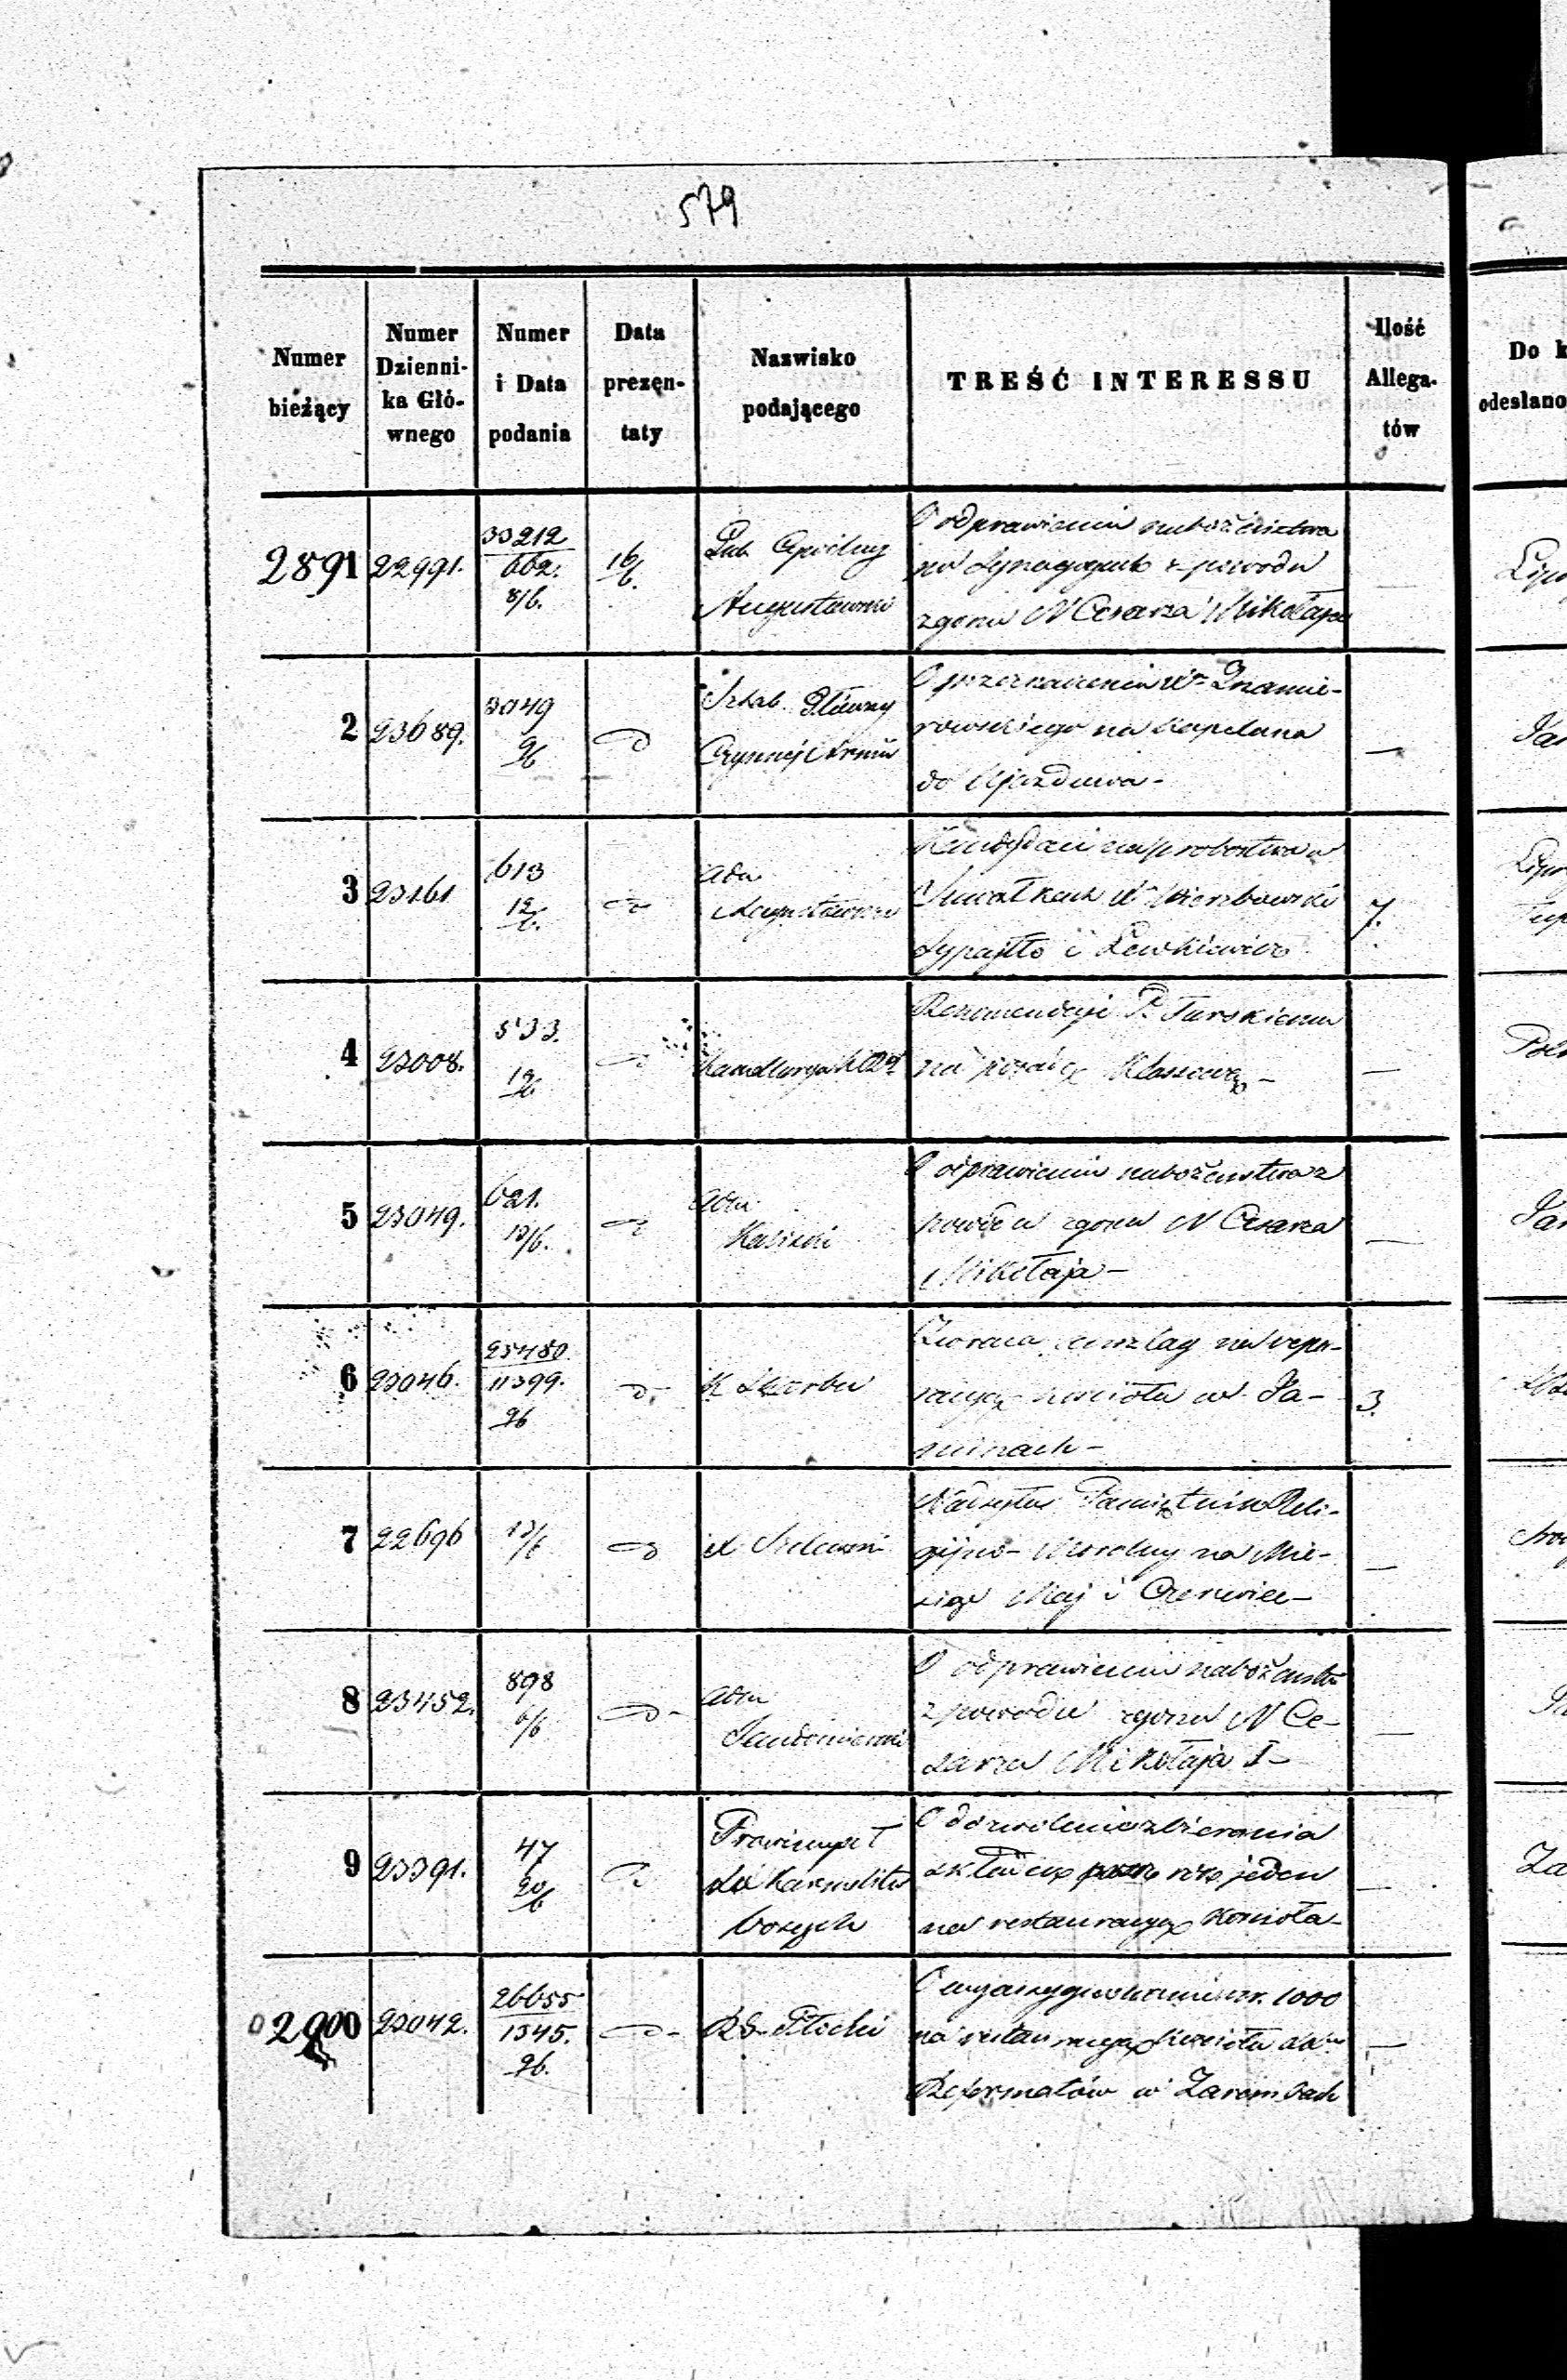 579
Numer bieżący
Numer Dzienni-
ka Głó-
wnego
Numer
i Data
podania
Data
prezęn-
taty
Nazwisko
podającego
TREŚĆ INTERESSU
Ilość
Allega-
tów
Do k
odesłano
2891 22991. 33212 662. 8/6. 16/6. Gub. Cywilny
Augustowski
O odprawieniu nabożeństwa
w Synagogach z powodu
zgonu N Cesarza Mikołaja
2 23689. 3049 9/6 Sztab Główny
Czynnej Armii
O przeznaczenie Znamie-
rowskiego na Kapelana
do Ujazdowa -
—
3 23161 613 12/6. Adm
Augustowski
Kandydaci na probostwo w
Suwałkach Wierzbowski
i Lewkiewicz
7.
4 23008. 533. 12/6
Kancellarya
Rekomendacye P. Turskiemu
na posadę Klassową -
—
5 23049. 621. 13/6. Adm
Kaliski
O odprawieniu nabożeństwa z
powodu zgonu N Cesarza
Mikołaja -
—
6 23046. 23480. 11399. 9/6 K Skarbu
Zwraca anszlag na repe-
racyę kościoła w Ja-
ninach -
3.
7 22696 13/6
X
Pamiętnik Reli-
gijno - Moralny na Mie-
siąc Maj i Czerwiec -
—
8 23452. 898 6/6 Adm
Sandomierski
O odprawieniu nabożeństw
z powodu zgonu N Ce-
sarza Mikołaja I -
—
9 23391. 47 20/6 Prowincyał
Karmelitów
bosych
O dozwolenie zbierania
składek rok jeden
na restauracyę Kościoła -
—
2900 23042. 26655 1345. 9/6. R G Płocki
O wyasygnowanie 1000
na restauracyę Kościoła
Reformatów w Zarembach
—